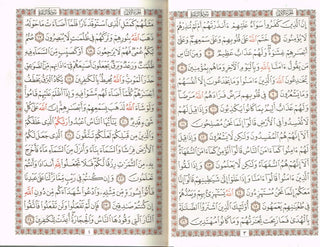 إِنَّ الَّذِينَ كَفَرُوا سَوَاءٌ عَلَيْهِمْ ءَأَنذَرْتَهُمْ أَمْ لَمْ تُنذِرْهُمْ
لَا يُؤْمِنُونَ ٦ خَتَمَ اللَّهُ عَلَىٰ قُلُوبِهِمْ وَعَلَىٰ سَمْعِهِمْ وَعَلَىٰ
أَبْصَٰرِهِمْ غِشَٰوَةٌ وَلَهُمْ عَذَابٌ عَظِيمٌ ٧ وَمِنَ النَّاسِ مَن يَقُولُ
ءَامَنَّا بِاللَّهِ وَبِالْيَوْمِ الْءَاخِرِ وَمَا هُم بِمُؤْمِنِينَ ٨ يُخَٰدِعُونَ اللَّهَ
وَالَّذِينَ ءَامَنُوا وَمَا يَخْدَعُونَ إِلَّا أَنفُسَهُمْ وَمَا يَشْعُرُونَ ٩
فِي قُلُوبِهِم مَّرَضٌ فَزَادَهُمُ اللَّهُ مَرَضًا وَلَهُمْ عَذَابٌ أَلِيمٌ
بِمَا كَانُوا يَكْذِبُونَ ١٠ وَإِذَا قِيلَ لَهُمْ لَا تُفْسِدُوا فِي الْأَرْضِ
قَالُوا إِنَّمَا نَحْنُ مُصْلِحُونَ ١١ أَلَا إِنَّهُمْ هُمُ الْمُفْسِدُونَ وَلَٰكِن
لَّا يَشْعُرُونَ ١٢ وَإِذَا قِيلَ لَهُمْ ءَامِنُوا كَمَا ءَامَنَ النَّاسُ قَالُوا
أَنُؤْمِنُ كَمَا ءَامَنَ السُّفَهَاءُ أَلَا إِنَّهُمْ هُمُ السُّفَهَاءُ وَلَٰكِن لَّا يَعْلَمُونَ ١٣
وَإِذَا لَقُوا الَّذِينَ ءَامَنُوا قَالُوا ءَامَنَّا وَإِذَا خَلَوْا إِلَىٰ شَيَٰطِينِهِمْ
قَالُوا إِنَّا مَعَكُمْ إِنَّمَا نَحْنُ مُسْتَهْزِءُونَ ١٤ اللَّهُ يَسْتَهْزِئُ بِهِمْ
وَيَمُدُّهُمْ فِي طُغْيَٰنِهِمْ يَعْمَهُونَ ١٥ أُولَٰئِكَ الَّذِينَ اشْتَرَوُا
الضَّلَٰلَةَ بِالْهُدَىٰ فَمَا رَبِحَت تِّجَٰرَتُهُمْ وَمَا كَانُوا مُهْتَدِينَ ١٦
٣
مَثَلُهُمْ كَمَثَلِ الَّذِي اسْتَوْقَدَ نَارًا فَلَمَّا أَضَاءَتْ مَا حَوْلَهُ
ذَهَبَ اللَّهُ بِنُورِهِمْ وَتَرَكَهُمْ فِي ظُلُمَٰتٍ لَّا يُبْصِرُونَ ١٧ صُمٌّ
بُكْمٌ عُمْيٌ فَهُمْ لَا يَرْجِعُونَ ١٨ أَوْ كَصَيِّبٍ مِّنَ السَّمَاءِ فِيهِ
ظُلُمَٰتٌ وَرَعْدٌ وَبَرْقٌ يَجْعَلُونَ أَصَٰبِعَهُمْ فِي ءَاذَانِهِم مِّنَ الصَّوَٰعِقِ
حَذَرَ الْمَوْتِ وَاللَّهُ مُحِيطٌ بِالْكَٰفِرِينَ ١٩ يَكَادُ الْبَرْقُ يَخْطَفُ
أَبْصَٰرَهُمْ كُلَّمَا أَضَاءَ لَهُم مَّشَوْا فِيهِ وَإِذَا أَظْلَمَ عَلَيْهِمْ قَامُوا
وَلَوْ شَاءَ اللَّهُ لَذَهَبَ بِسَمْعِهِمْ وَأَبْصَٰرِهِمْ إِنَّ اللَّهَ عَلَىٰ كُلِّ
شَيْءٍ قَدِيرٌ ٢٠ يَٰأَيُّهَا النَّاسُ اعْبُدُوا رَبَّكُمُ الَّذِي خَلَقَكُمْ
وَالَّذِينَ مِن قَبْلِكُمْ لَعَلَّكُمْ تَتَّقُونَ ٢١ الَّذِي جَعَلَ لَكُمُ
الْأَرْضَ فِرَٰشًا وَالسَّمَاءَ بِنَاءً وَأَنزَلَ مِنَ السَّمَاءِ مَاءً فَأَخْرَجَ
بِهِ مِنَ الثَّمَرَٰتِ رِزْقًا لَّكُمْ فَلَا تَجْعَلُوا لِلَّهِ أَندَادًا وَأَنتُمْ
تَعْلَمُونَ ٢٢ وَإِن كُنتُمْ فِي رَيْبٍ مِّمَّا نَزَّلْنَا عَلَىٰ عَبْدِنَا
فَأْتُوا بِسُورَةٍ مِّن مِّثْلِهِ وَادْعُوا شُهَدَاءَكُم مِّن دُونِ اللَّهِ
إِن كُنتُمْ صَٰدِقِينَ ٢٣ فَإِن لَّمْ تَفْعَلُوا وَلَن تَفْعَلُوا فَاتَّقُوا
النَّارَ الَّتِي وَقُودُهَا النَّاسُ وَالْحِجَارَةُ أُعِدَّتْ لِلْكَٰفِرِينَ ٢٤
٤